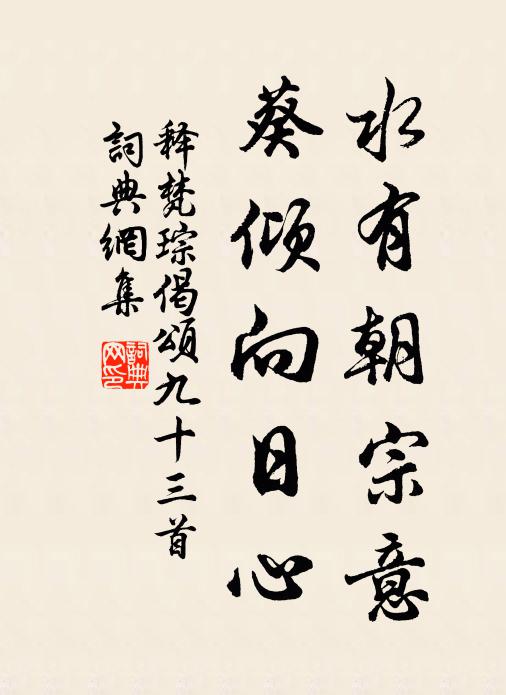 水有朝宗意
葵傾向日心
释梵琮偈頌九十三首
詞典網集
詞典網印